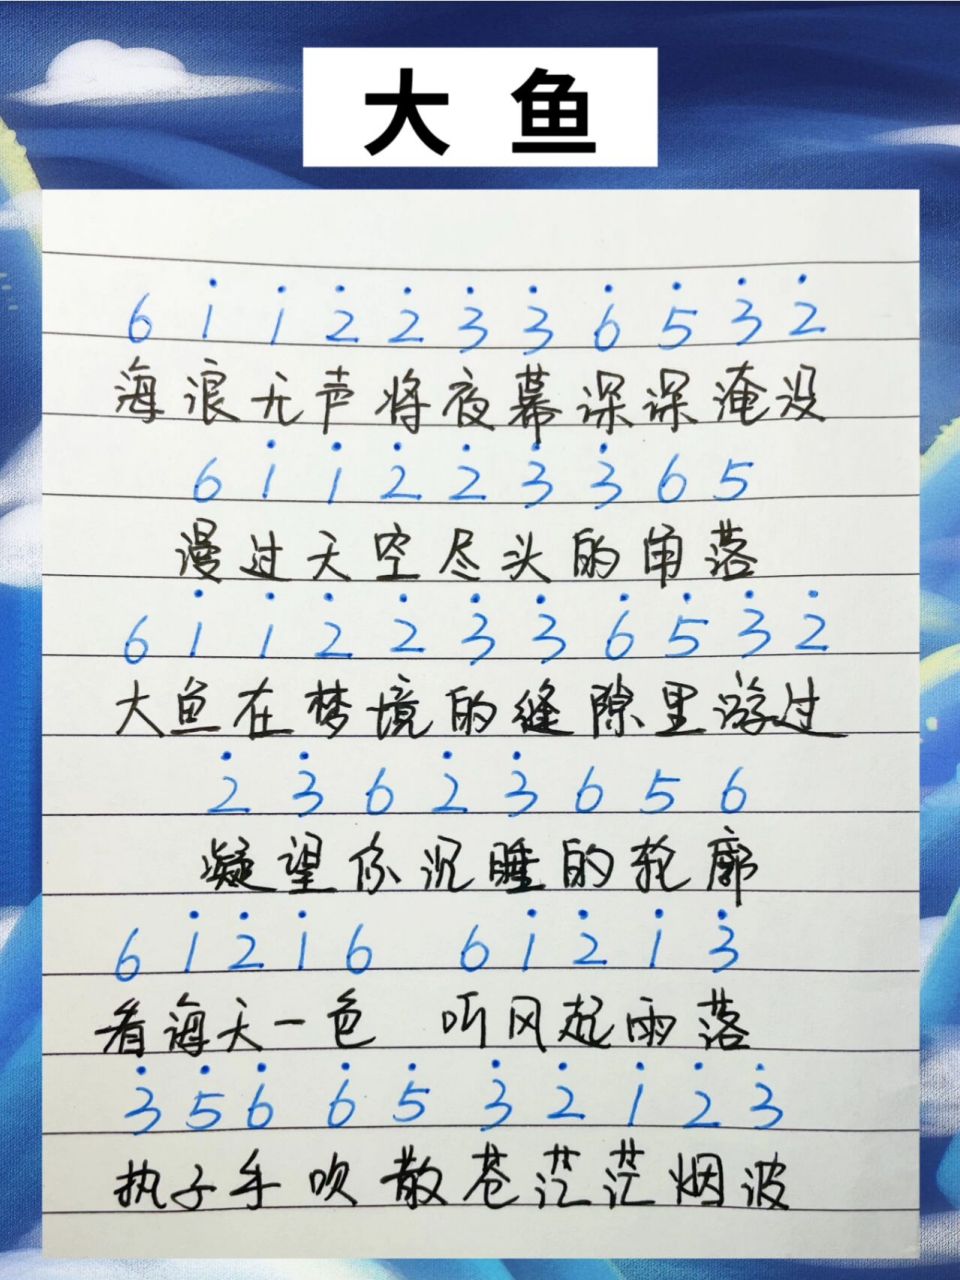 大鱼
6 1̇ 1̇ 2̇ 2̇ 3̇ 3̇ 6̇ 5̇ 3̇ 2̇
海浪无声将夜幕深深淹没
6 1̇ 1̇ 2̇ 2̇ 3̇ 3̇ 6 5
漫过天空尽头的角落
6 1̇ 1̇ 2̇ 2̇ 3̇ 3̇ 6̇ 5̇ 3̇ 2̇
大鱼在梦境的缝隙里游过
2̇ 3̇ 6 2̇ 3̇ 6 5 6
凝望你沉睡的轮廓
6 1̇ 2̇ 1̇ 6 6 1̇ 2̇ 1̇ 3̇
看海天一色 听风起雨落
3̇ 5̇ 6̇ 6̇ 5̇ 3̇ 2̇ 1̇ 2̇ 3̇
执子手吹散苍茫茫烟波